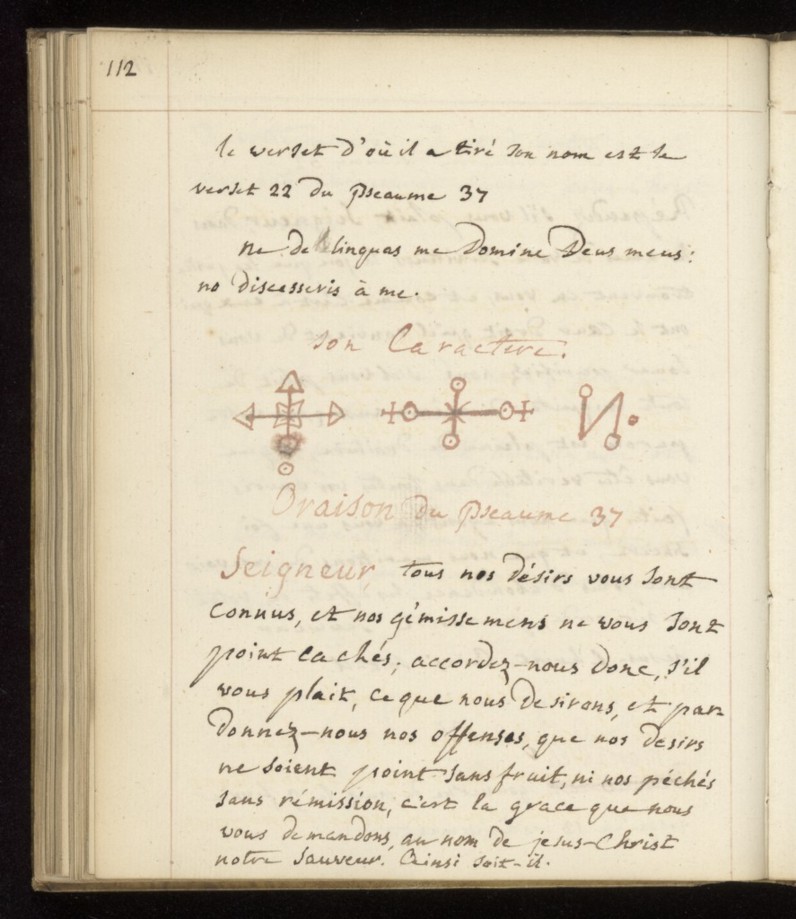 112
le verset d'où il a tiré son nom est le
verset 22 du Pseaume 37
ne de linquas me Domine Deus meus:
ne discesseris à me.
Son Caractere.
Oraison du Pseaume 37
Seigneur, tous nos désirs vous sont
connus, et nos gémissemens ne vous sont
point cachés; accordez-nous donc, s'il
vous plait, ce que nous desirons, et par-
donnez-nous nos offenses, que nos desirs
ne soient point sans fruit, ni nos péchés
sans rémission, c'est la grace que nous
vous demandons, au nom de jesus-Christ
notre Sauveur. Ainsi soit-il.